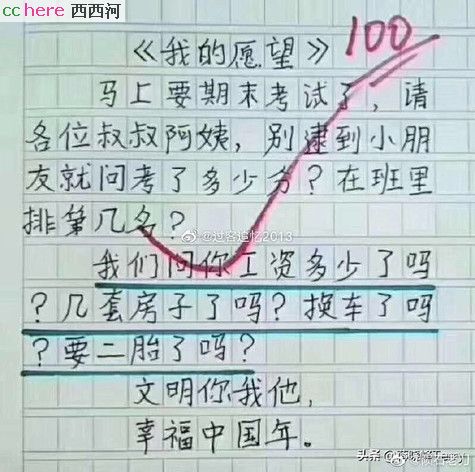 cchere 西西河
《我的愿望》 100
马上要期末考试了,请
各位叔叔阿姨,别逮到小朋
友就问考了多少分?在班里
排第几名?
@过客追忆2013
我们问你工资多少了吗
?几套房子了吗?换车了吗
?要二胎了吗?
文明你我他,
幸福中国年。